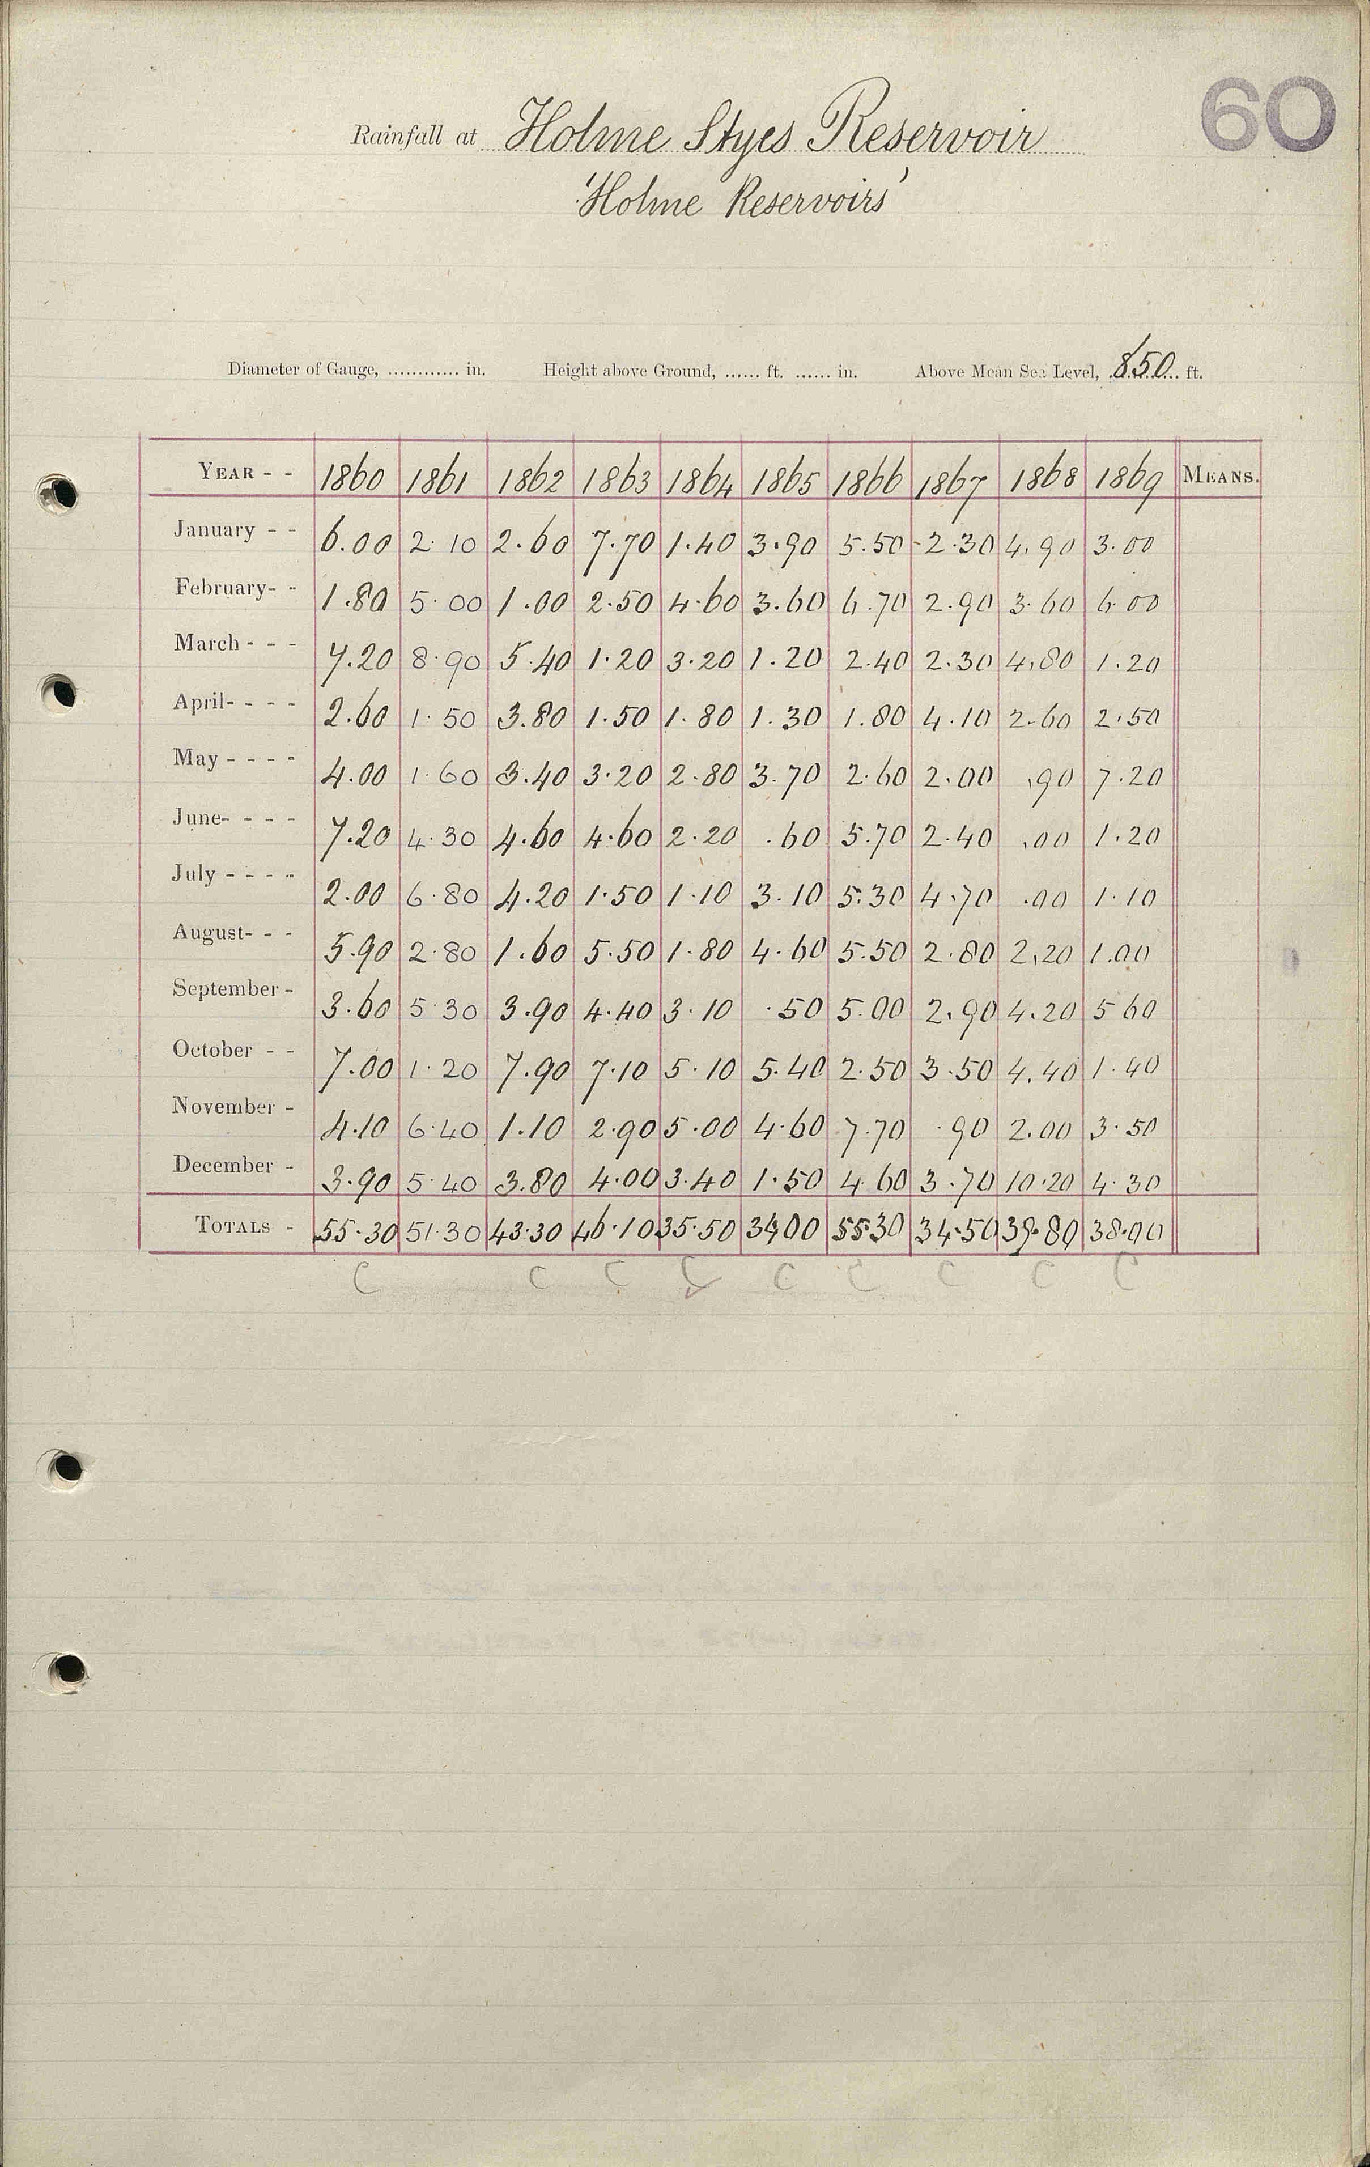 60
Rainfall at Holme Styes Reservoir
'Holme Reservoirs'
Diameter of Gauge, ............ in. Height above Ground, ...... ft. ...... in. Above Mean Sea Level, 850 ft.
YEAR - - 1860 1861 1862 1863 1864 1865 1866 1867 1868 1869 MEANS.
January - - 6.00 2.10 2.60 7.70 1.40 3.90 5.50 2.30 4.90 3.00
February- - 1.80 5.00 1.00 2.50 4.60 3.60 6.70 2.90 3.60 6.00
March - - - 7.20 8.90 5.40 1.20 3.20 1.20 2.40 2.30 4.80 1.20
April- - - - 2.60 1.50 3.80 1.50 1.80 1.30 1.80 4.10 2.60 2.50
May - - - - 4.00 1.60 3.40 3.20 2.80 3.70 2.60 2.00 .90 7.20
June- - - - 7.20 4.30 4.60 4.60 2.20 .60 5.70 2.40 .00 1.20
July - - - - 2.00 6.80 4.20 1.50 1.10 3.10 5.30 4.70 .00 1.10
August- - - 5.90 2.80 1.60 5.50 1.80 4.60 5.50 2.80 2.20 1.00
September - 3.60 5.30 3.90 4.40 3.10 .50 5.00 2.90 4.20 5 60
October - - 7.00 1.20 7.90 7.10 5.10 5.40 2.50 3.50 4.40 1.40
November - 4.10 6.40 1.10 2.90 5.00 4.60 7.70 .90 2.00 3.50
December - 3.90 5.40 3.80 4.00 3.40 1.50 4.60 3.70 10.20 4.30
TOTALS - 55.30 51.30 43.30 46.10 35.50 34.00 55.30 34.50 39.80 38.00
C C C C C C C C C